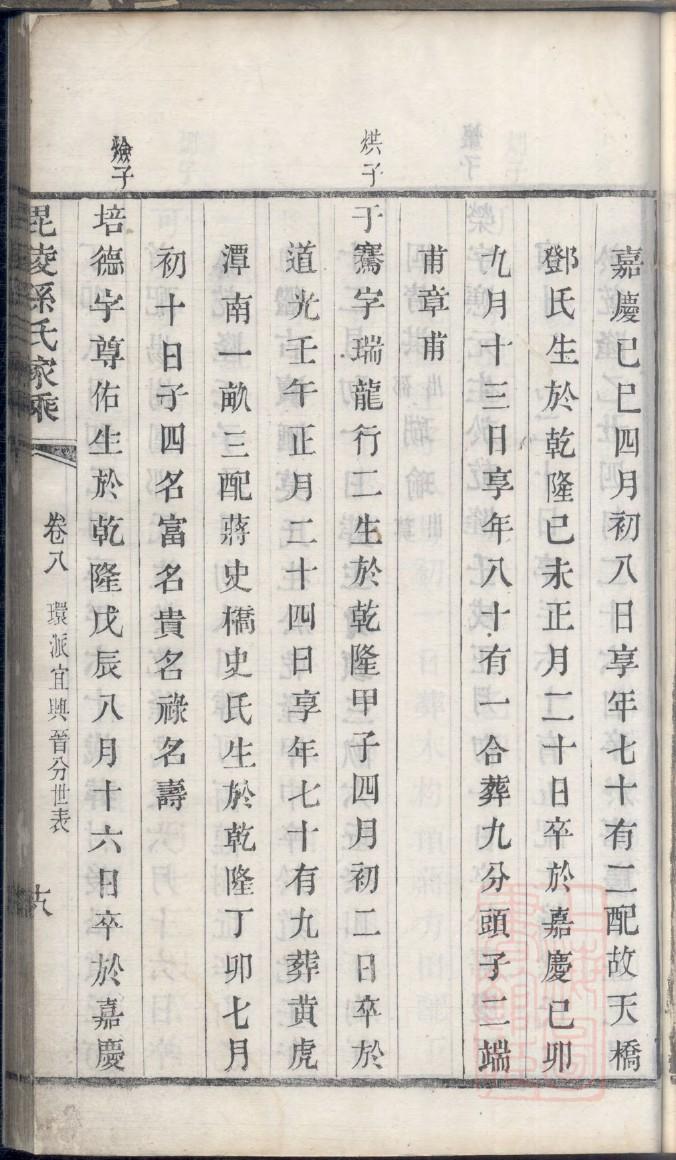 嘉慶己巳四月初八日享年七十有二配故天橋
鄧氏生於乾隆己未正月二十日卒於嘉慶己卯
九月十三日享年八十有一合葬九分頭子二端
甫章甫
烘子
于騫字瑞龍行二生於乾隆甲子四月初二日卒於
道光壬午正月二十四日享年七十有九葬黄虎
潭南一畝三配蔣史橋史氏生於乾隆丁卯七月
初十日子四名富名貴名祿名壽
燓子
培德字尊佑生於乾隆戊辰八月十六日卒於嘉慶
毘陵孫氏家乘
卷八
環派宜興晉分世表
十八